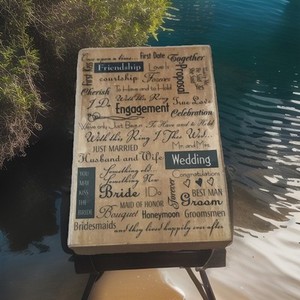 Once upon a time... First Date Together
Friendship
courtship Forever
Proposal
Cherish To have and to hold
I Do With this Ring
Engagement True Love
Celebration
We've only Just Begun To Have and to Hold
With this Ring I Thee Wed...
JUST MARRIED Mr. and Mrs.
Husband and Wife Wedding
YOU MAY KISS THE BRIDE
Something old Congratulations
Something New
Forever
Bride I Do BEST MAN
MAID OF HONOR Groom
Bouquet Honeymoon Groomsmen
Bridesmaids and they lived happily ever after